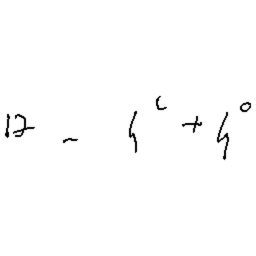 17 - 4ᶜ + 4⁰